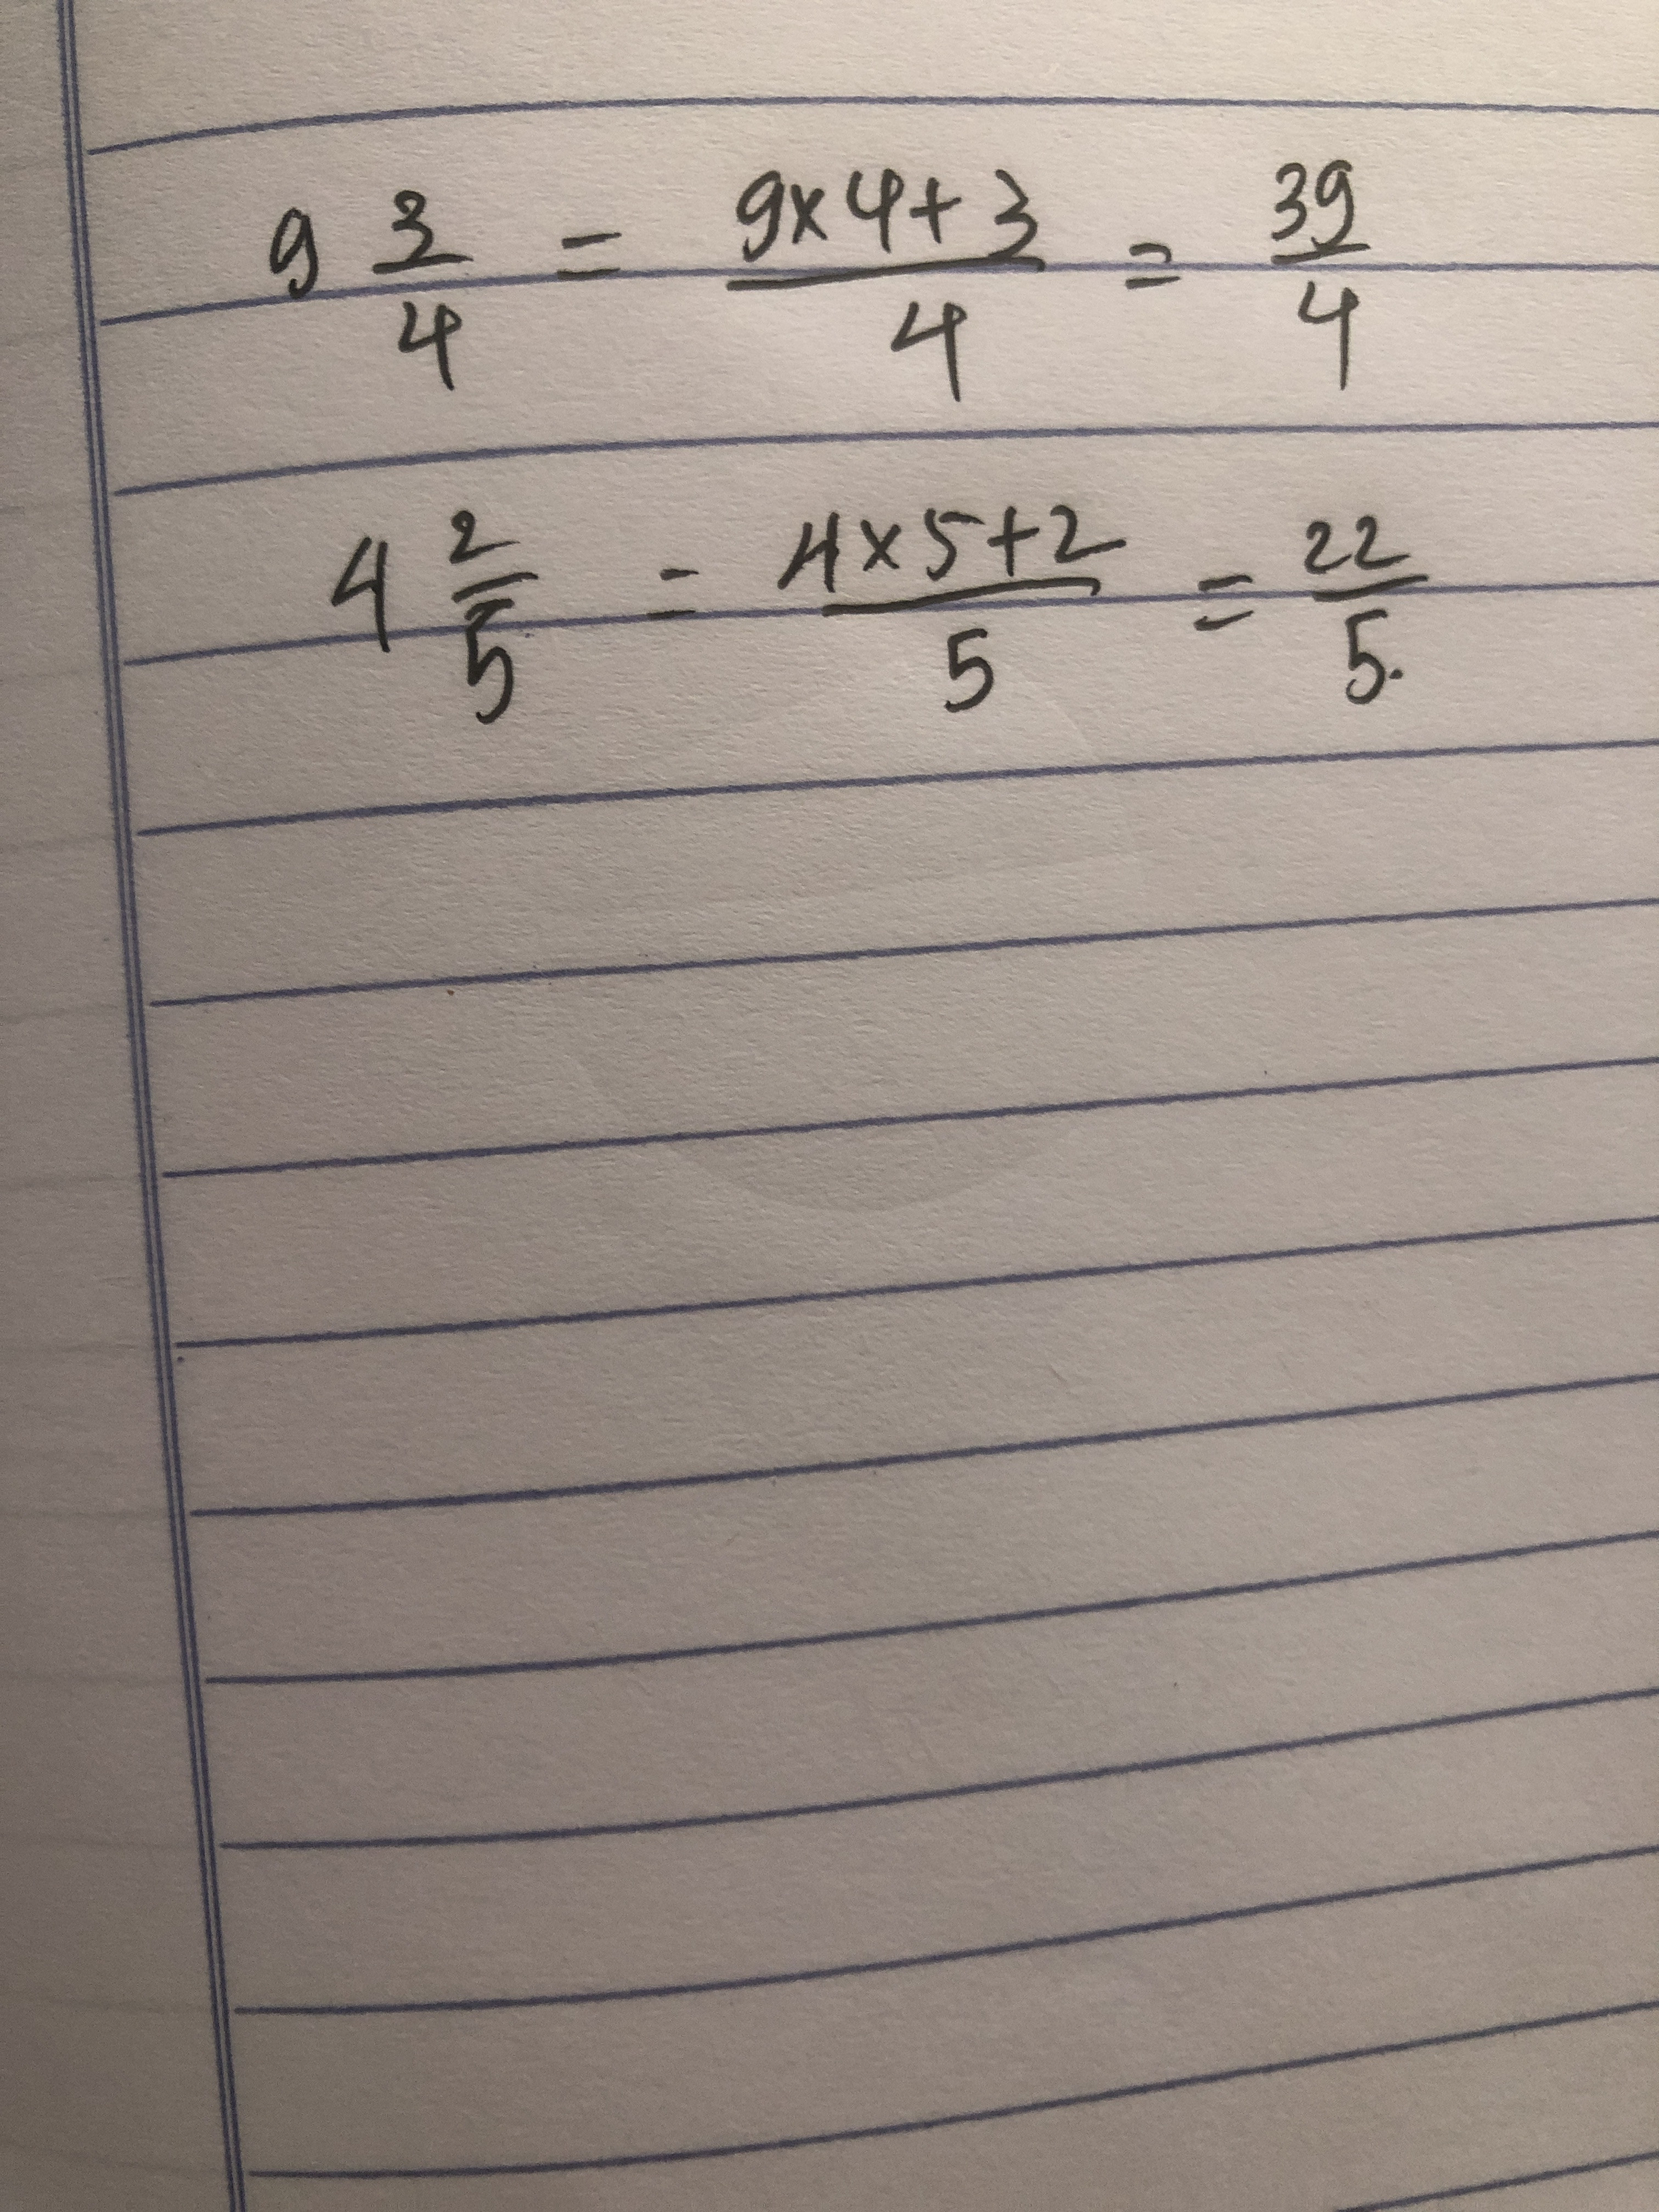 9 3/4 = (9×4+3)/4 = 39/4
4 2/5 = (4×5+2)/5 = 22/5.